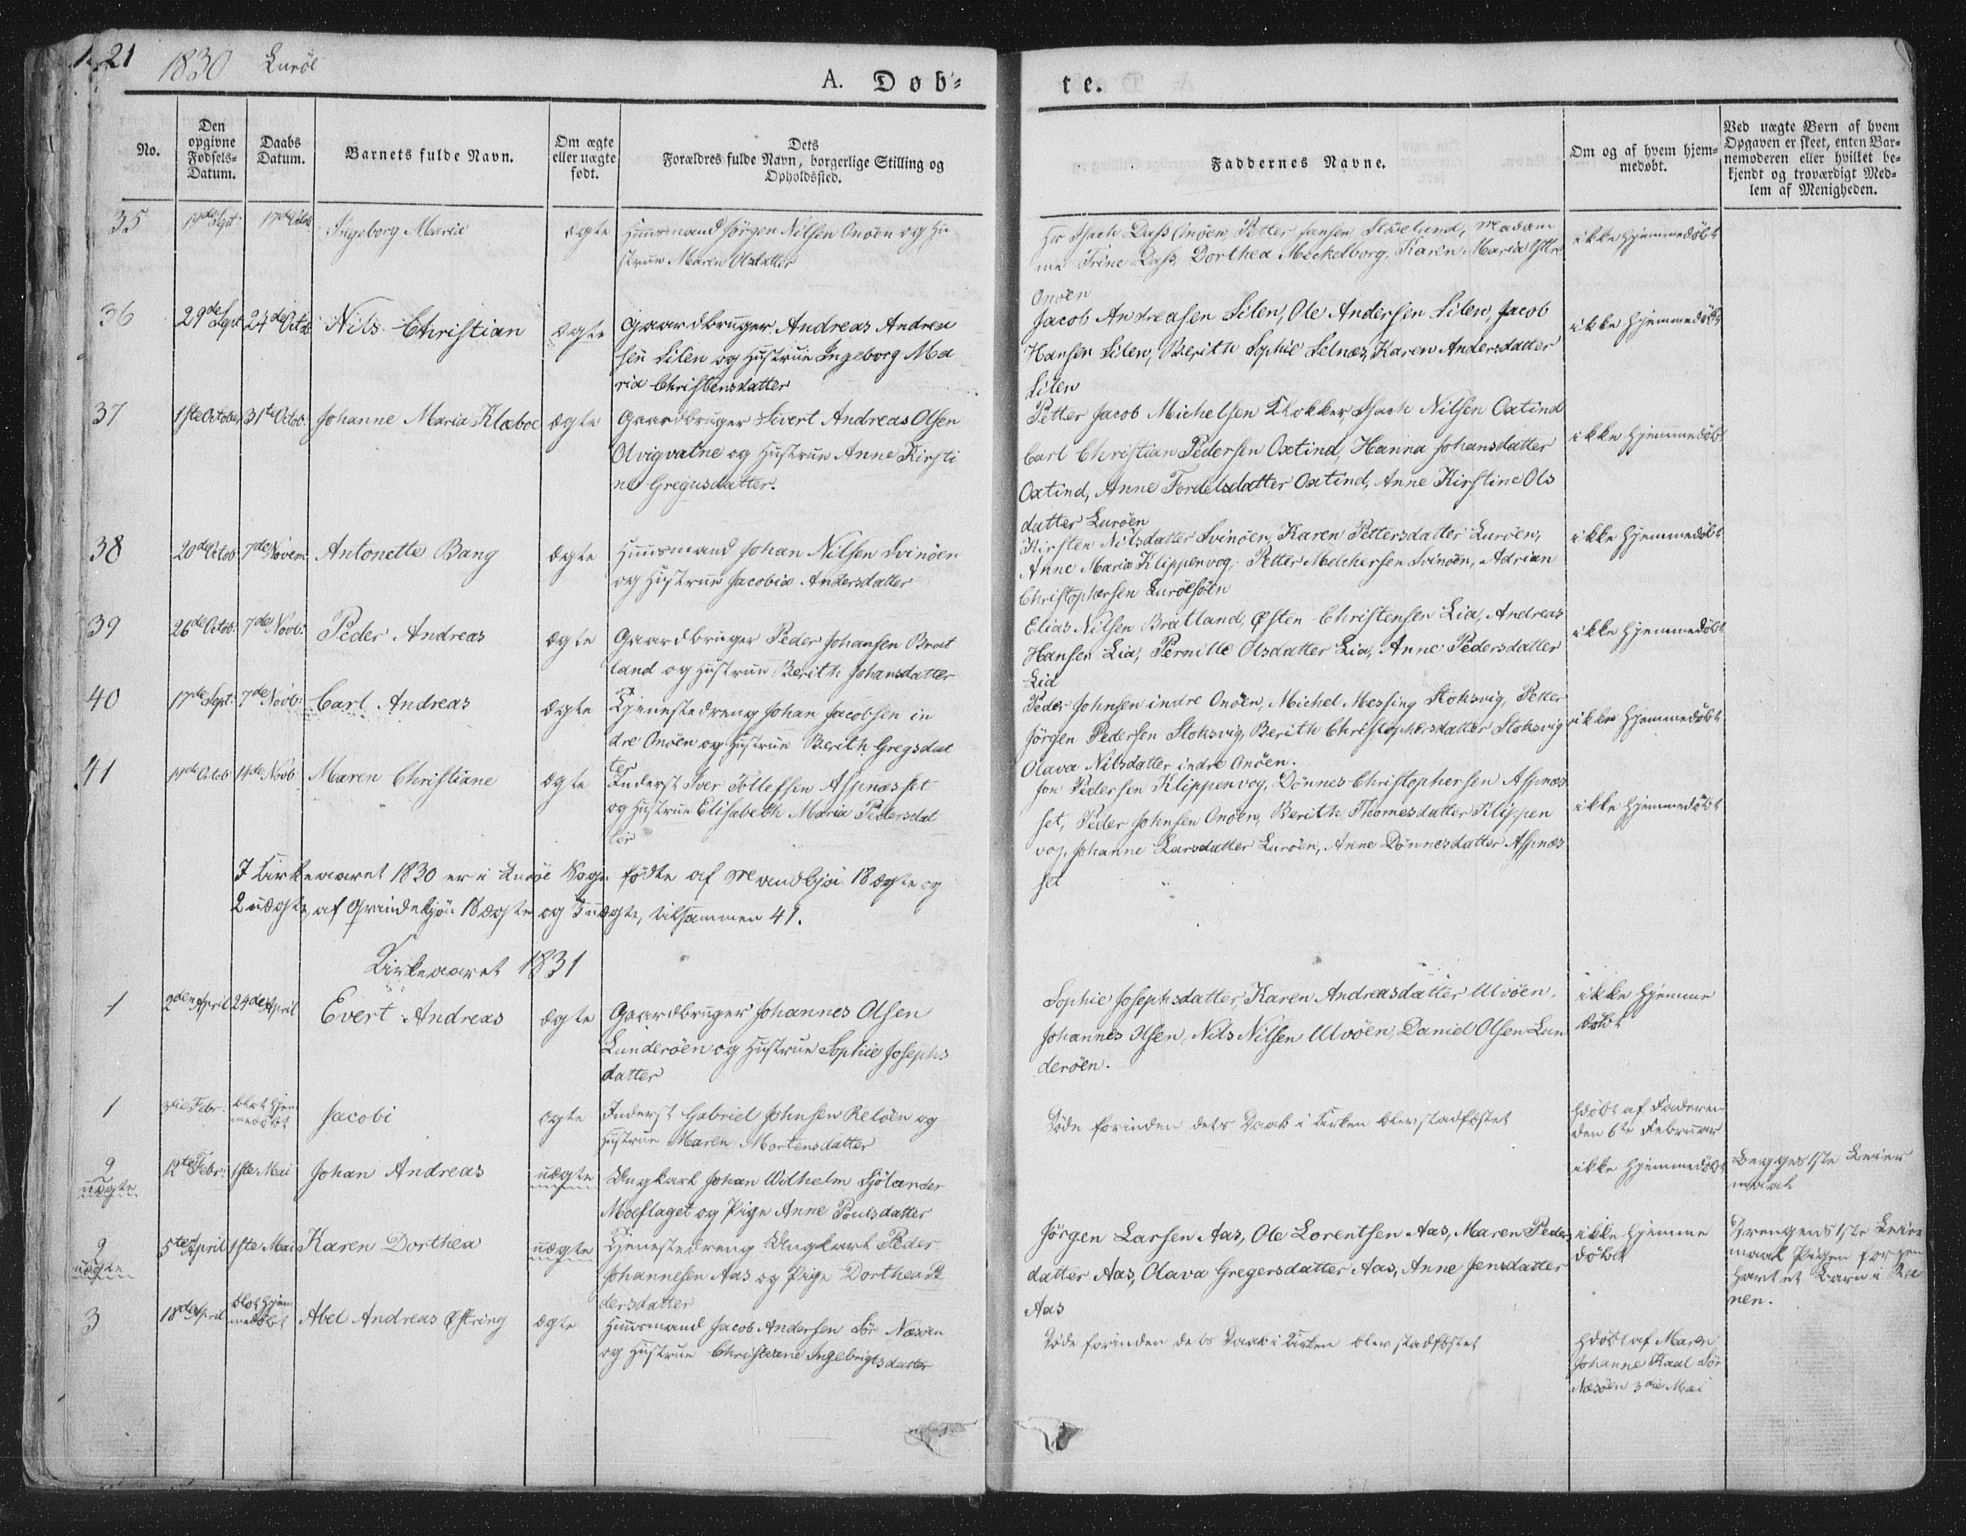 21 1830 Luröe
A. Døb-
te.
No.
Den opgivne Fødsels-Datum.
Daabs Datum.
Barnets fulde Navn.
Om ægte eller uægte født.
Dets Forældres fulde Navn, borgerlige Stilling og Opholdssted.
Faddernes Navne.
Om og af hvem hjemmedøbt.
Ved uægte Børn af hvem Opgaven er skeet, enten Barnemoderen eller hvilket bekjendt og troværdigt Medlem af Menigheden.
35 Ingeborg Maria ægte Huusmand Jörgen Nilsen Onöen og Hu
strue Maren Olsdatter
Hr Isach Dass Onöen, Petter Jansen Madam
me Trine Dass, Dorthea Meckelborg, Karen Maria
Onöen
ikke hjemmedöbt
36 29de Sept 24de Octob Nils Christian ægte Gaardbruger Andreas Andrea
sen Silen og Hustrue Ingeborg Ma
ria Christensdatter
Jacob Andreasen Silen, Ole Andersen Silen, Jacob
Hansen Silen, Berith Sophie Selnæs, Karen Andersdatter
Silen
ikke hjemmedöbt
37 1ste October 31te Octob. Johanne Maria Klæboe ægte Gaardbruger Sivert Andreas Olsen
Olvigvatne og Hustrue Anne Kirsti
ne Gregusdatter.
Petter Jacob Michelsen Klokker, Isach Nilsen Oxtind
Carl Christian Pedersen Oxtind, Hanna Johansdatter
Oxtind, Anne Tordelsdatter Oxtind, Anne Kirstine Ols
datter Luröen
ikke hjemmedöbt
38 20de Octob 7de Novem Antonette Bang ægte Huusmand Johan Nilsen Svinöen
og Hustrue Jacobia Andersdatter
Kirsten Nilsdatter Svinöen, Karen Pettersdatter Luröen,
Anne Maria Klippenvog, Petter Melchersen Svinöen, Adrian
Christophersen Luröesöen
ikke hjemmedöbt
39 26de Octob. 7de Novb. Peder Andreas ægte Gaardbruger Peder Johansen Brat
land og Hustrue Berith Johansdatter
Elias Nilsen Bratland, Østen Christensen Lia, Andreas
Hansen Lia, Pernille Olsdatter Lia, Anne Pedersdatter
Lia
ikke hjemmedöbt
40 17de Sept. 7de Novb. Carl Andreas ægte Tjenestedreng Johan Jacobsen in
dre Onöen og Hustrue Berith Gregsdat
ter
Peder Johnsen indre Onöen, Michel Messing Stoksvig, Petter
Jörgen Pedersen Stoksvig, Berith Christophersdatter Stoksvig
Olava Nilsdatter indre Onöen.
ikke hjemmedöbt
41 14de Novb Maren Christiane ægte Inderst Iver Tollefsen Aspnæsset
og Hustrue Elisabeth Maria Pedersdat
ter
Jon Pedersen Klippenvog, Dönnes Christophersen Aspnæs
set, Peder Johnsen Onöen, Berith Thomesdatter Klippen
vog, Johanne Larsdatter Luröen, Anne Dönnesdatter Aspnæs
set
ikke hjemmedöbt
I Kirkeaaret 1830 er i Luröe Sogn födte af Mandkjön 18 ægte og
2 uægte, af Qvindekjön 18 ægte og 3 uægte, tilsammen 41.
Kirkeaaret 1831
1 2den April 24de April Evert Andreas ægte Gaardbruger Johannes Olsen
Lunderöen og Hustrue Sophie Josephs
datter
Sophie Josephsdatter, Karen Andreasdatter Ulvöen,
Johannes Olsen, Nils Nilsen Ulvöen, Daniel Olsen Lun
deröen.
ikke hjemme
döbt
1 3die Febr. blot hjem
medöbt Jacobi ægte Inderst Gabriel Johnsen Relöen og
Hustrue Maren Mortensdatter
Döde forinden dets Daab i Kirken blev stadfæstet
hdöbt af Faderen
den 6te Februar
2
uægte 12te Febr. 1ste Mai Johan Andreas uægte Ungkarl Johan Wilhelm Sjölander
Moeflaget og Pige Anne Poulsdatter
ikke hjemmedöbt
Begges 1ste Leier
maal
2
uægte 5te April 1ste Mai Karen Dorthea uægte Tjenestedreng Ungkarl Peder
Johannesen Aas og Pige Dorthea Pe
dersdatter
Jörgen Larsen Aas, Ole Lorentsen Aas, Maren Peders
datter Aas, Olava Gregersdatter Aas, Anne Jensdatter
Aas
ikke hjemme
döbt
Drengens 1ste Leier
maal Pigen for hen
havt et Barn i Ra
nen.
3 18de April blot hjem
medöbt Abel Andreas Østring ægte Huusmand Jacob Andersen Sör Næsöen
og Hustrue Christiane Ingebrigtsdatter
Döde forinden dets Daab i Kirken blev stadfæstet
hdöbt af Maren
Johanne Kaal Sör
Næsöen 3die Mai